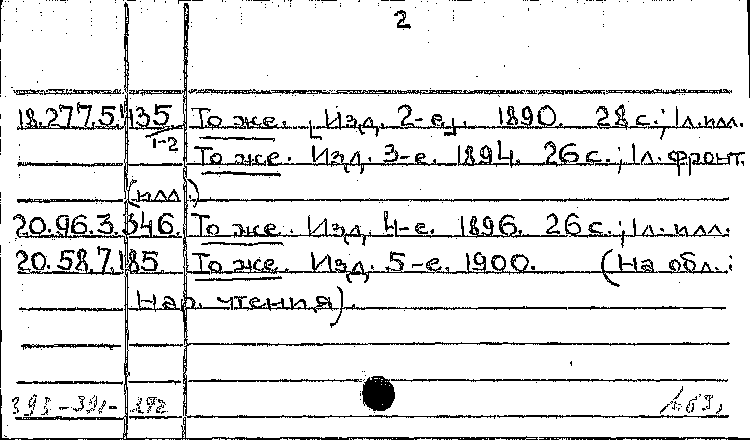 2
18.277.5.435 То же. [Изд. 2-е]. 1890. 28 с.; 1 л. илл.
1-2
То же. Изд. 3-е. 1894. 26 с.; 1 л. фронт.
(илл.)
20.96.3.346. То же. Изд. 4-е. 1896. 26 с.; 1 л. илл.
20.58.7.185 То же. Изд. 5-е. 1900. (На обл.:
Нар. чтения).